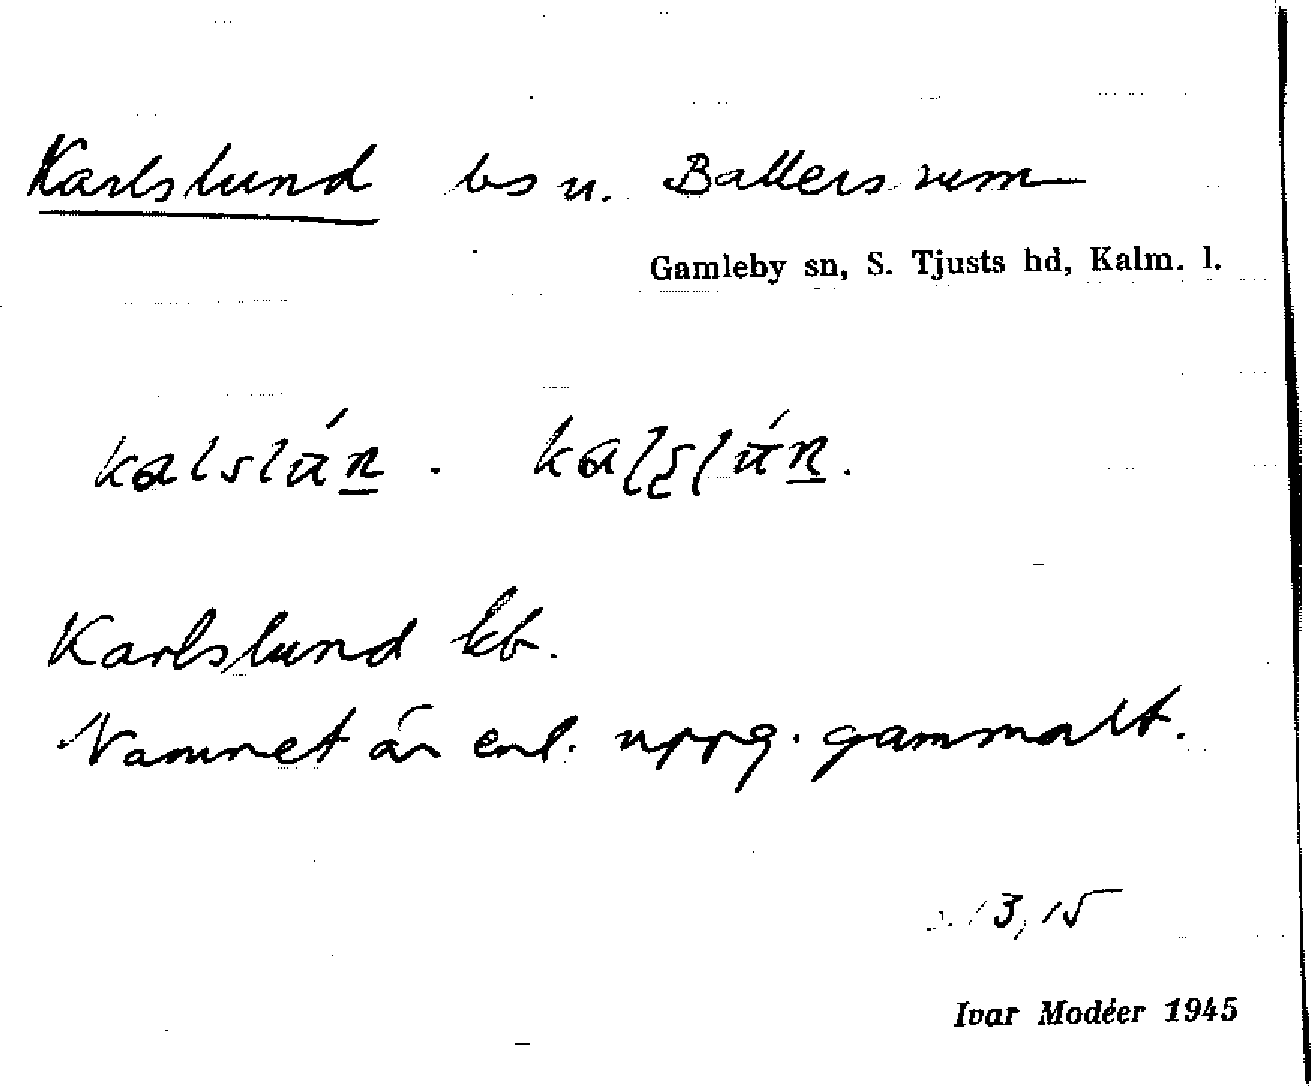 Karlslund bs u. Ballersrum
Gamleby sn, S. Tjusts hd, Kalm. l.
kalslún. kalslún.
Karlslund kb.
Namnet är enl. uppg. gammalt.
13,15
Ivar Modéer 1945